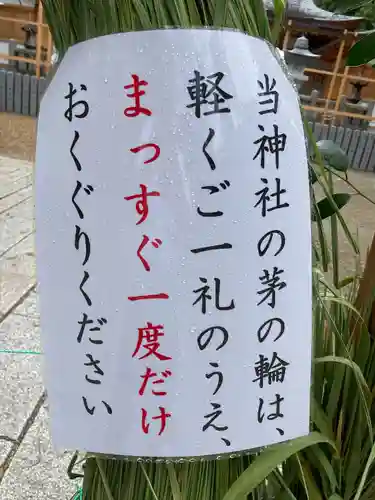 当神社の茅の輪は、
軽くご一礼のうえ、
まっすぐ一度だけ
おくぐりください